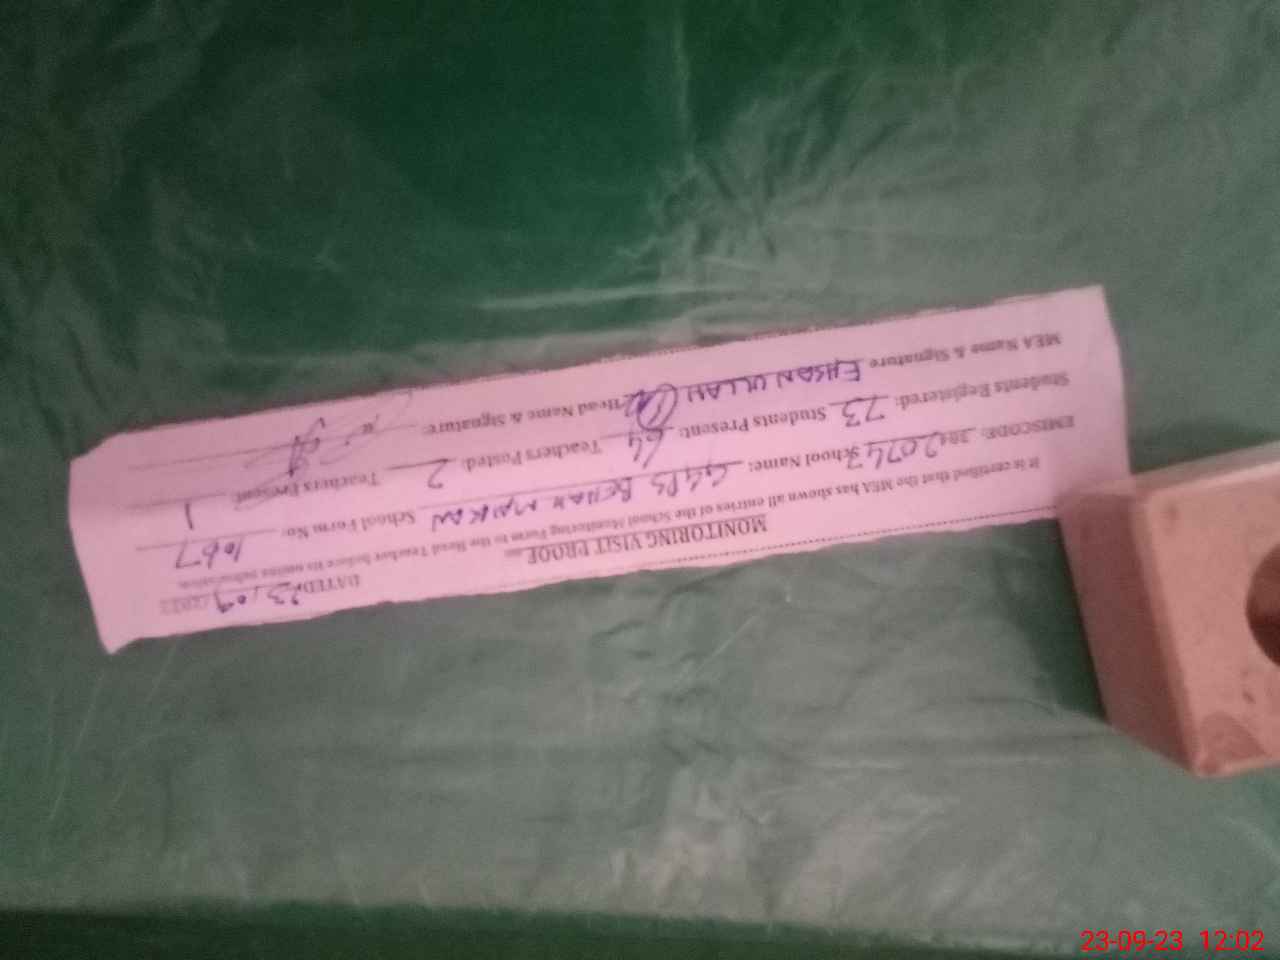 MONITORING VISIT PROOF
DATED: 23/09/2023
It is certified that the MEA has shown all entries of the School Monitoring Form to the Head Teacher before its online submission.
EMISCODE: School Name: GGPS BEHAH MAKAN School Form No: 1067
Students Registered: 73 Students Present: 64 Teachers Posted: 2 Teachers Present 1
MEA Name & Signature EHSAN ULLAH Head Name & Signature:
23-09-23 12:02